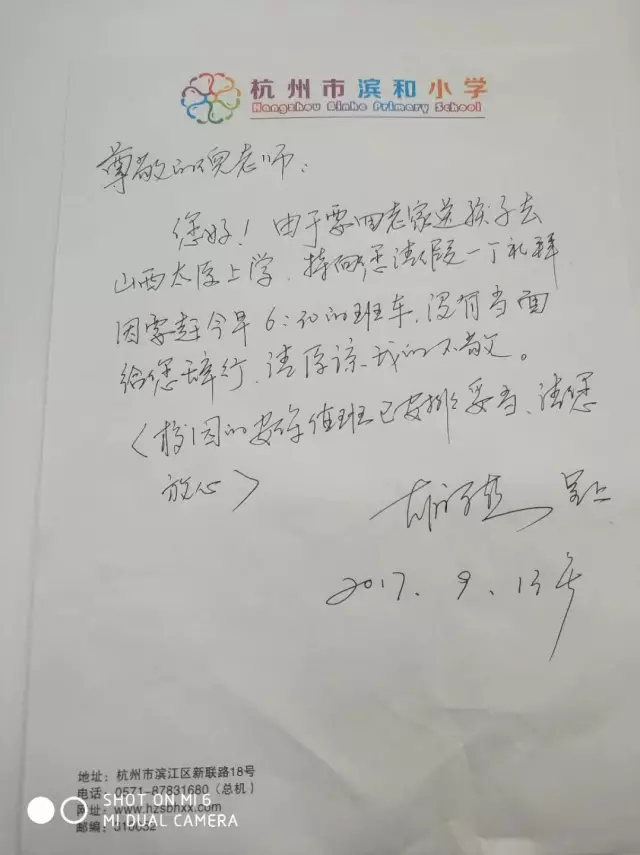 杭州市滨和小学
Hangzhou Binhe Primary School
尊敬的倪老师:
您好!由于要回老家送孩子去
山西太原上学,特向您请假一个礼拜
因需赶今早6:20的班车,没有当面
给您辞行,请原谅我的不敬。
(校园的安保值班已安排妥当,请您
放心)
呈上
2017.9.13号
地址:杭州市滨江区新联路18号
电话:0571-87831680(总机)
网址:www.hzsbhxx.com
邮编:310052
SHOT ON MI 6
MI DUAL CAMERA